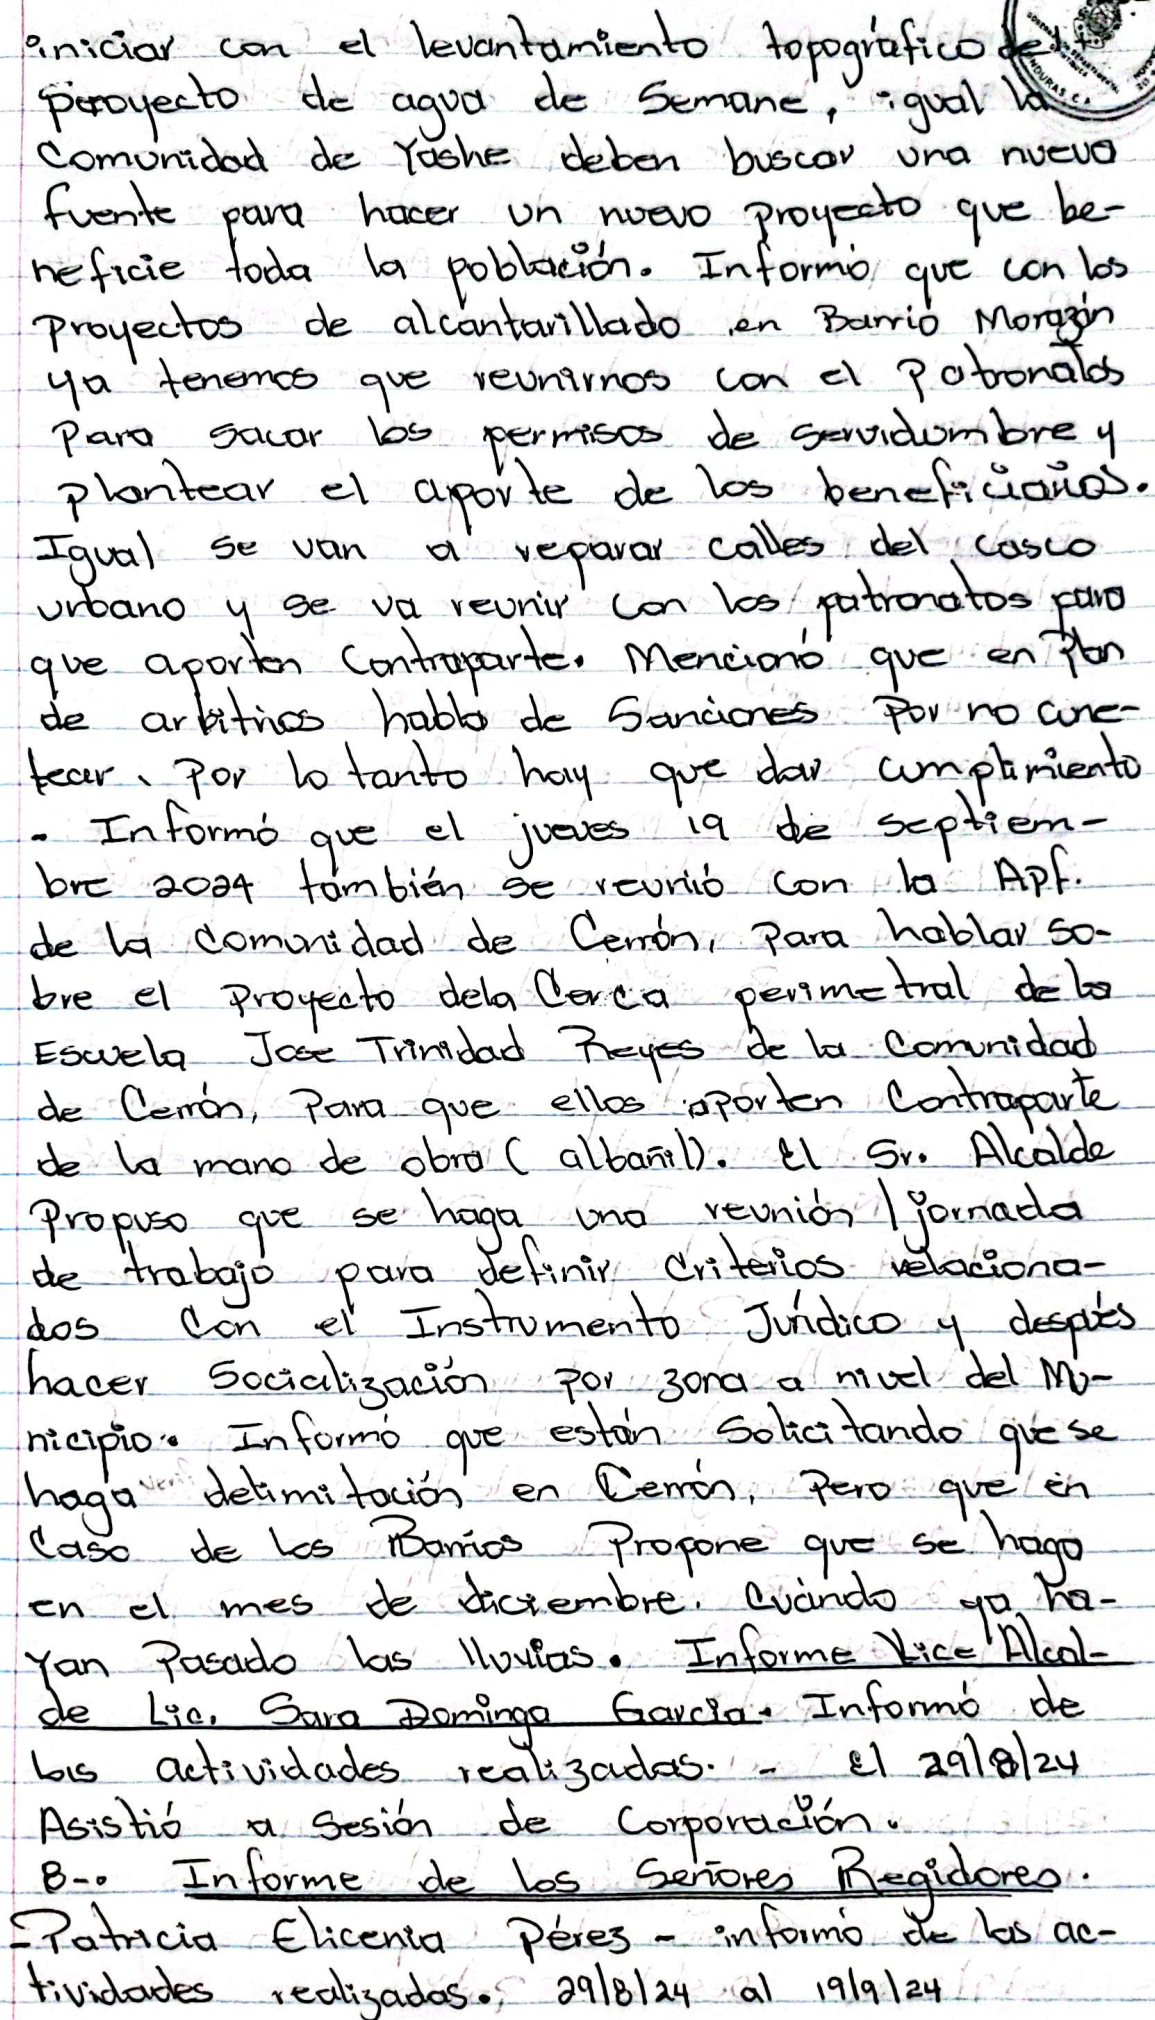 iniciar con el levantamiento topográfico del
proyecto de agua de Semane, igual la
Comunidad de Yashe deben buscar una nueva
fuente para hacer un nuevo proyecto que be-
neficie toda la población. Informó que con los
proyectos de alcantarillado en Barrio Morazán
ya tenemos que reunirnos con el Patronatos
Para sacar los permisos de servidumbre y
plantear el aporte de los beneficiarios.
Igual se van a reparar calles del casco
urbano y se va reunir con los patronatos para
que aporten Contraparte. Mencionó que en Plan
de arbitrios habla de Sanciones Por no cune-
tear. Por lo tanto hay que dar cumplimiento
- Informó que el jueves 19 de septiem-
bre 2024 también se reunió con la Apf.
de la Comunidad de Cerrón, Para hablar so-
bre el Proyecto dela Cerca perimetral de la
Escuela Jose Trinidad Reyes de la Comunidad
de Cerrón, Para que ellos aporten Contraparte
de la mano de obra (albañil). El Sr. Alcalde
Propuso que se haga una reunión / jornada
de trabajo para definir Criterios relaciona-
dos Con el Instrumento Jurídico y después
hacer Socialización por zona a nivel del Mu-
nicipio. Informó que están Solicitando que se
haga delimitación en Cerrón, Pero que en
Caso de los Barrios Propone que se haga
en el mes de diciembre. Cuándo ya ha-
yan Pasado las lluvias. Informe Vice Alcal-
de Lic. Sara Domingo Garcia. Informó de
las actividades realizadas. - El 29/8/24
Asistió a Sesión de Corporación.
8-. Informe de los Señores Regidores.
- Patricia Elicenia Pérez - informó de las ac-
tividades realizadas. 29/8/24 al 19/9/24